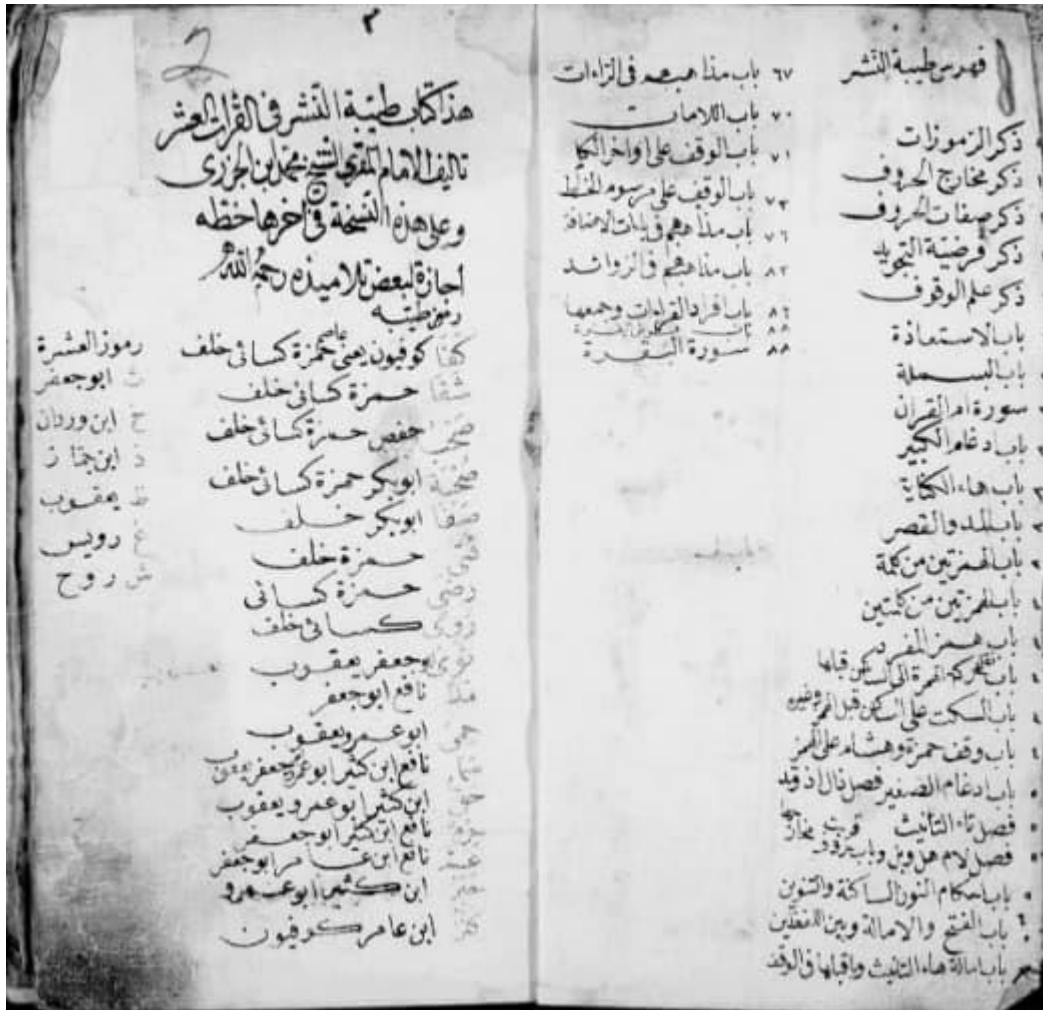 فهرس طيبة النشر
ذكر الرموزات
ذكر مخارج الحروف
ذكر صفات الحروف
ذكر فرضية التجويد
ذكر علم الوقوف
باب الاستعاذة
باب البسملة
سورة ام القران
باب ادغام الكبير
باب هاء الكناية
باب المد والقصر
باب الهمزتين من كلمة
باب الهمزتين من كلمتين
باب همز المفرد
باب نقل حركة الهمزة الى الساكن قبلها
باب السكت على الساكن قبل الهمز وغيره
باب وقف حمزة وهشام على الهمز
باب ادغام الصغير فصل ذال اذ وقد
فصل تاء التأنيث
فصل لام هل وبل وباب حروف قربت مخارجها
باب احكام النون الساكنة والتنوين
باب الفتح والامالة وبين اللفظين
باب امالة هاء التانيث وماقبلها في الوقف
٦٧ باب مذاهبهم في الراءات
٧٠ باب اللامات
٧١ باب الوقف على اواخر الكلم
باب الوقف على مرسوم الخط
٧٦ باب مذاهبهم في ياءات الاضافة
٨٢ باب مذاهبهم في الزوائد
٨٦ باب افراد القراءات وجمعها
٨٨ سورة البقرة
٣
2
هذا كتاب طيبة النشر في القرات العشر
تاليف الامام المقري الشيخ محمد ابن الجزرى
وعلى هذه النسخة في اخرها خطه
اجازة لبعض تلاميذه رحمه الله
رموز طيبه
كفا كوفيون يعنى عاصم حمزة كسائى خلف
شفا حمزة كسائى خلف
حفص حمزة كسائى خلف
ابوبكر حمزة كسائى خلف
ابوبكر خلف
حمزة خلف
حمزة كسائى
كسائى خلف
ابوجعفر يعقوب
نافع ابو جعفر
ابو عمرو يعقوب
نافع ابن كثير ابو عمرو ابوجعفر يعقوب
ابن كثير ابو عمرو يعقوب
نافع ابن كثير ابو جعفر
نافع ابن عامر ابو جعفر
ابن كثير ابو عمرو
ابن عامر كوفيون
رموز العشرة
ث ابو جعفر
خ ابن وردان
ذ ابن جماز
ظ يعقوب
غ رويس
ش روح